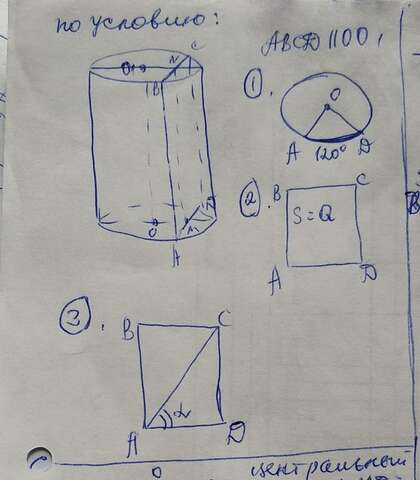 по условию:
ABCD || OO₁
O₁
N
C
B
O
N₁
D
A
1.
O
A
120°
D
2.
B
C
S=Q
A
D
3.
B
C
α
A
D
O
центральный